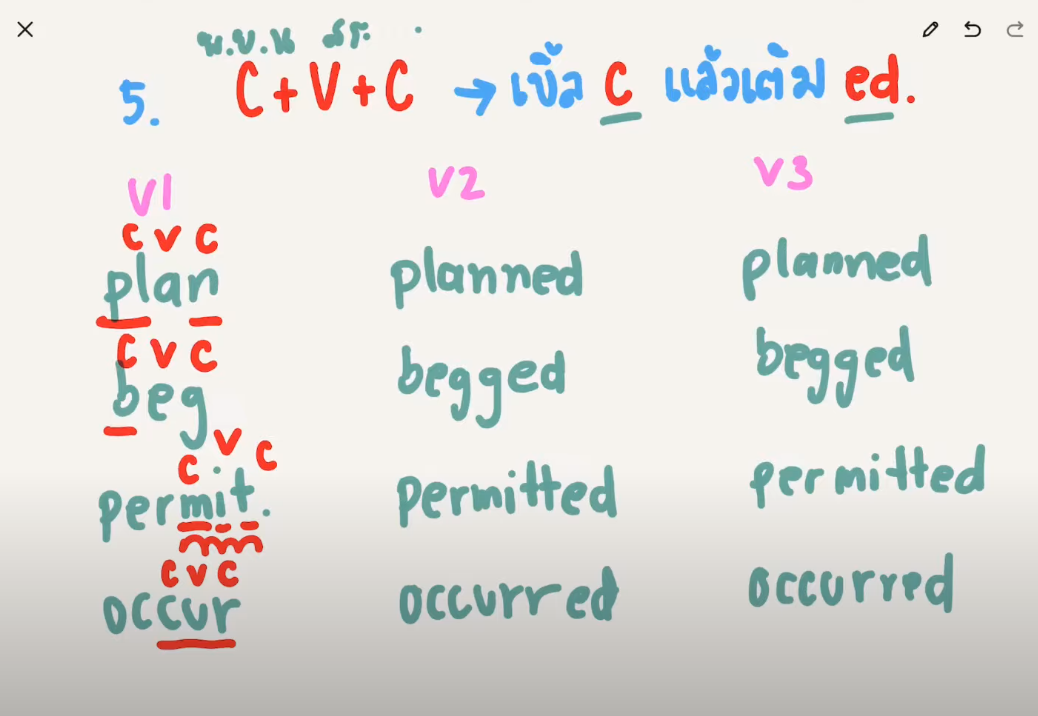 พ.ย.น สระ
5. C+V+C → เบิ้ล C แล้วเติม ed.
V1 V2 V3
C V C
plan planned planned
C V C
beg begged begged
C V C
permit. permitted permitted
C V C
occur occurred occurred